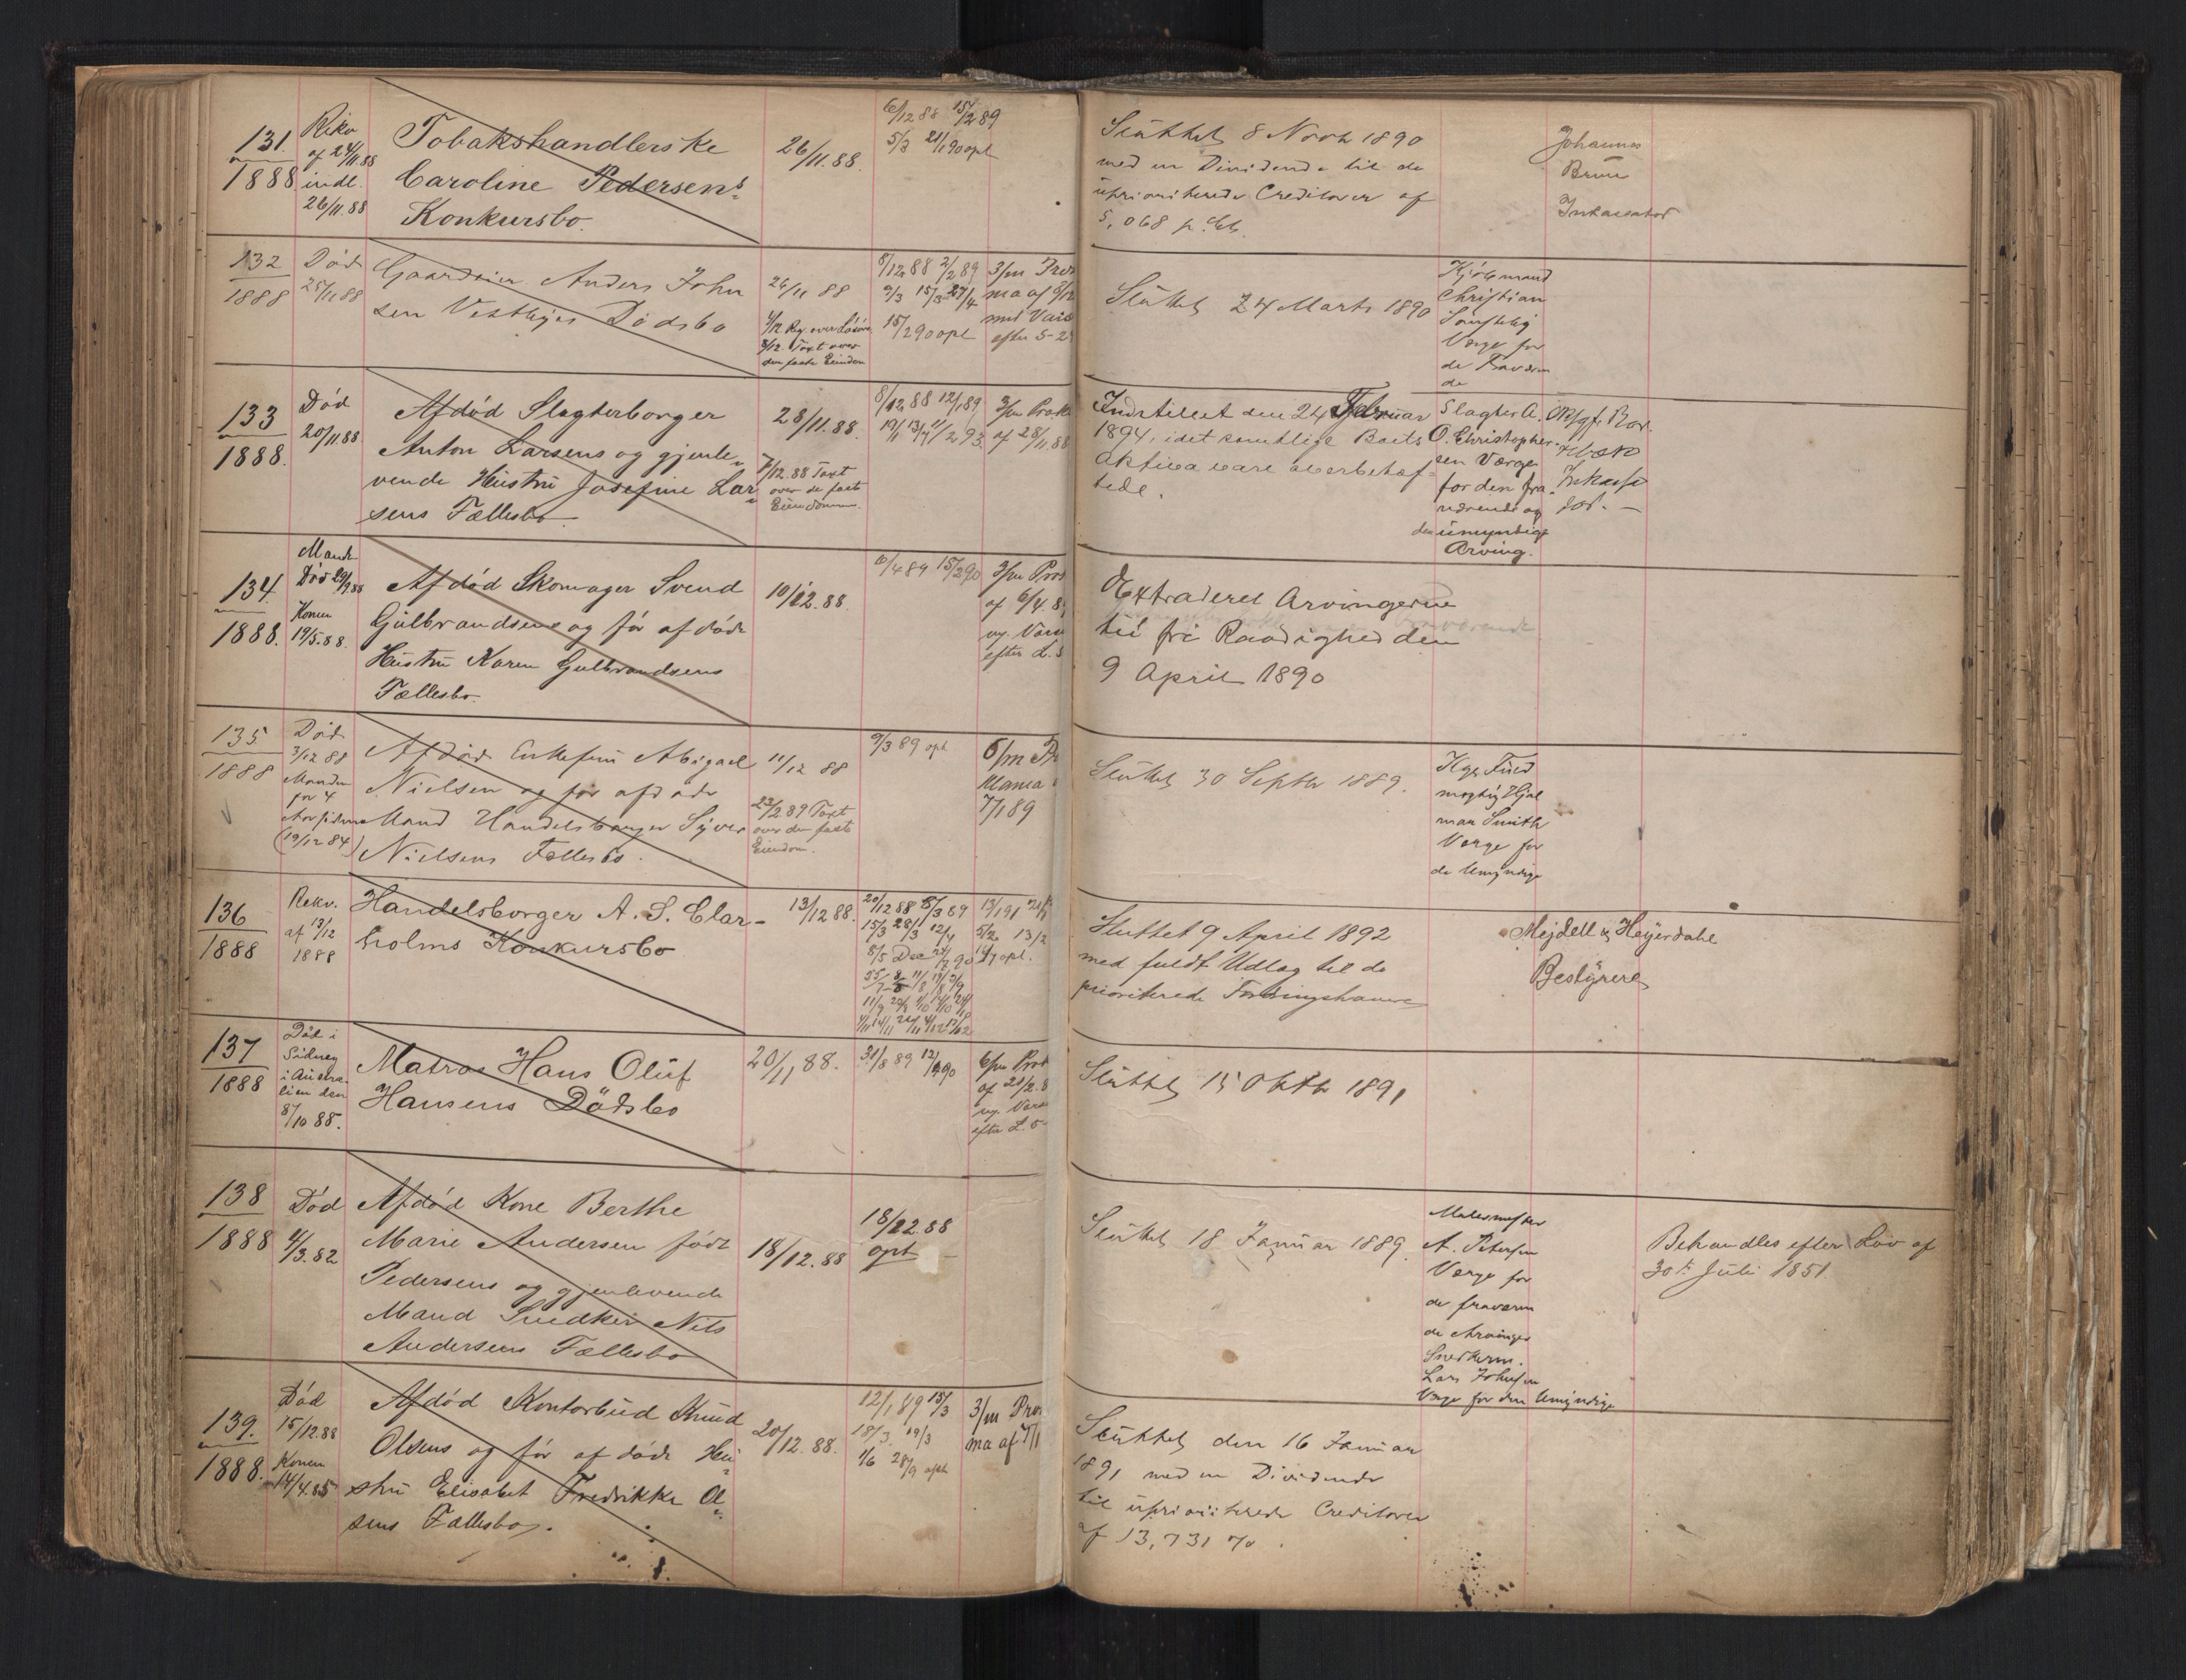 131.
1888.
Rekv.
af 24/11 88
indl.
26/11.88
Tobakshandlerske
Caroline Pedersens
Konkursbo.
26/11.88.
6/12 88 15/2 89
5/3 21/1 90 opt
Sluttet 8 Novbr 1890
med en Dividende til de
uprioriterede Creditorer af
5,068 p. Ct.
Johannes
Bruun
Inkassator
132
1888
Død
25/11 88
Gaardeier Anders John
sen Vestbyes Dødsbo
26/11 88
4/12 Reg. over Løsøre
8/12 Taxt over
den faste Eiendom
8/12 88 2/2 89
9/3 15/3 27/4
15/2 90 opt
3/m Pro
ma af 8/12
med Vars
efter 5-2
Sluttet 24 Marts 1890
Kjøbmand
Christian
Værge for
de Fraværen
de
133
1888.
Død
20/11 88.
Afdød Slagterborger
Anton Larsens og gjenle-
vende Hustru Josefine Lar-
sens Fællesbo
28/11.88.
7/12.88 Taxt
over de faste
Eiendomme.
8/12 88 12/1 89
3/m Prok
af 28/11 88
Indstillet den 24 Februar
1894, idet samtlige Boets
Aktiva vare overbehæf-
tede.
Slagter A.
O. Christopher-
sen Værge
for den fra-
værende og
den umyndige
Arving.
134.
1888.
Manden
Død 29/1 88
Konen
19/5.88.
Afdød Skomager Svend
Gulbrandsens og før afdøde
Hustru Karen Gulbrandsens
Fællesbo.
10/12.88.
6/4 89 15/2 90
3/m Prok
af 6/4.89
ny. Vars
efter L. 5
Extraderet Arvingerne
til fri Raadighed den
9 April 1890
135
1888
Død
3/12 88
Manden
for 4
Aar siden
(19/12 84)
Afdøde Enkefru Abigael
Nielsen og før afdøde
Mand Handelsborger Syver
Nielsens Fællesbo.
11/12 88
23/2 89 Taxt
over den faste
Eiendom.
9/3 89 opt
6/m Pr
klama
7/1 89
Sluttet 30 Septbr 1889.
Kgs. Fuld
mægtig Hjal
mar Smith
Værge for
de Umyndige
136
1888
Rekv.
af 13/12
1888
Handelsborger A. S. Clar-
holms Konkursbo
13/12 88.
20/12 88 8/3 89
15/3 28/3 12/4
13/1 91
5/2 13/2
14/7 opt.
Sluttet 9 April 1892
med fuldt Udlæg til de
prioriterede Fordringshavere
Mejdell & Heyerdahl
Bestyrere
137
1888
Død i
Sidney
i Austra-
lien den
8/10 85.
Matros Hans Oluf
Hansens Dødsbo
20/11 88.
31/8 89 12/4 90
6/m Prok
af 21/2.8
ny. Vars
efter L. 5
Sluttet 15 Oktbr 1891
138
1888
Død
4/3.82
Afdød Kone Berthe
Marie Andersen født
Pedersens og gjenlevende
Mand Snedker Nils
Andersens Fællesbo
18/12.88
18/12.88
opt
Sluttet 18 Januar 1889.
Malermester
A. Petersen
Værge for
de fraværen
de Arvinger
Snedkerm.
Lars Johnsen
Værge for den Umyndige
Behandles efter Lov af
30te Juli 1851
139.
1888.
Død
15/12.88
Konen
14/4.85
Afdød Kontorbud Knud
Olsens og før afdøde Hu-
stru Elisabet Fredrikke Ol-
sens Fællesbo.
20/12.88.
12/1 89 15/3
18/3. 19/3
1/6 28/9 opt
3/m Pro
ma af 7/1
Sluttet den 16 Januar
1891 med en Dividende
til upriöriterede Creditorer
af 13,731 %.